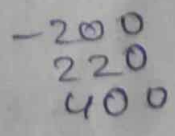 -200
220
400